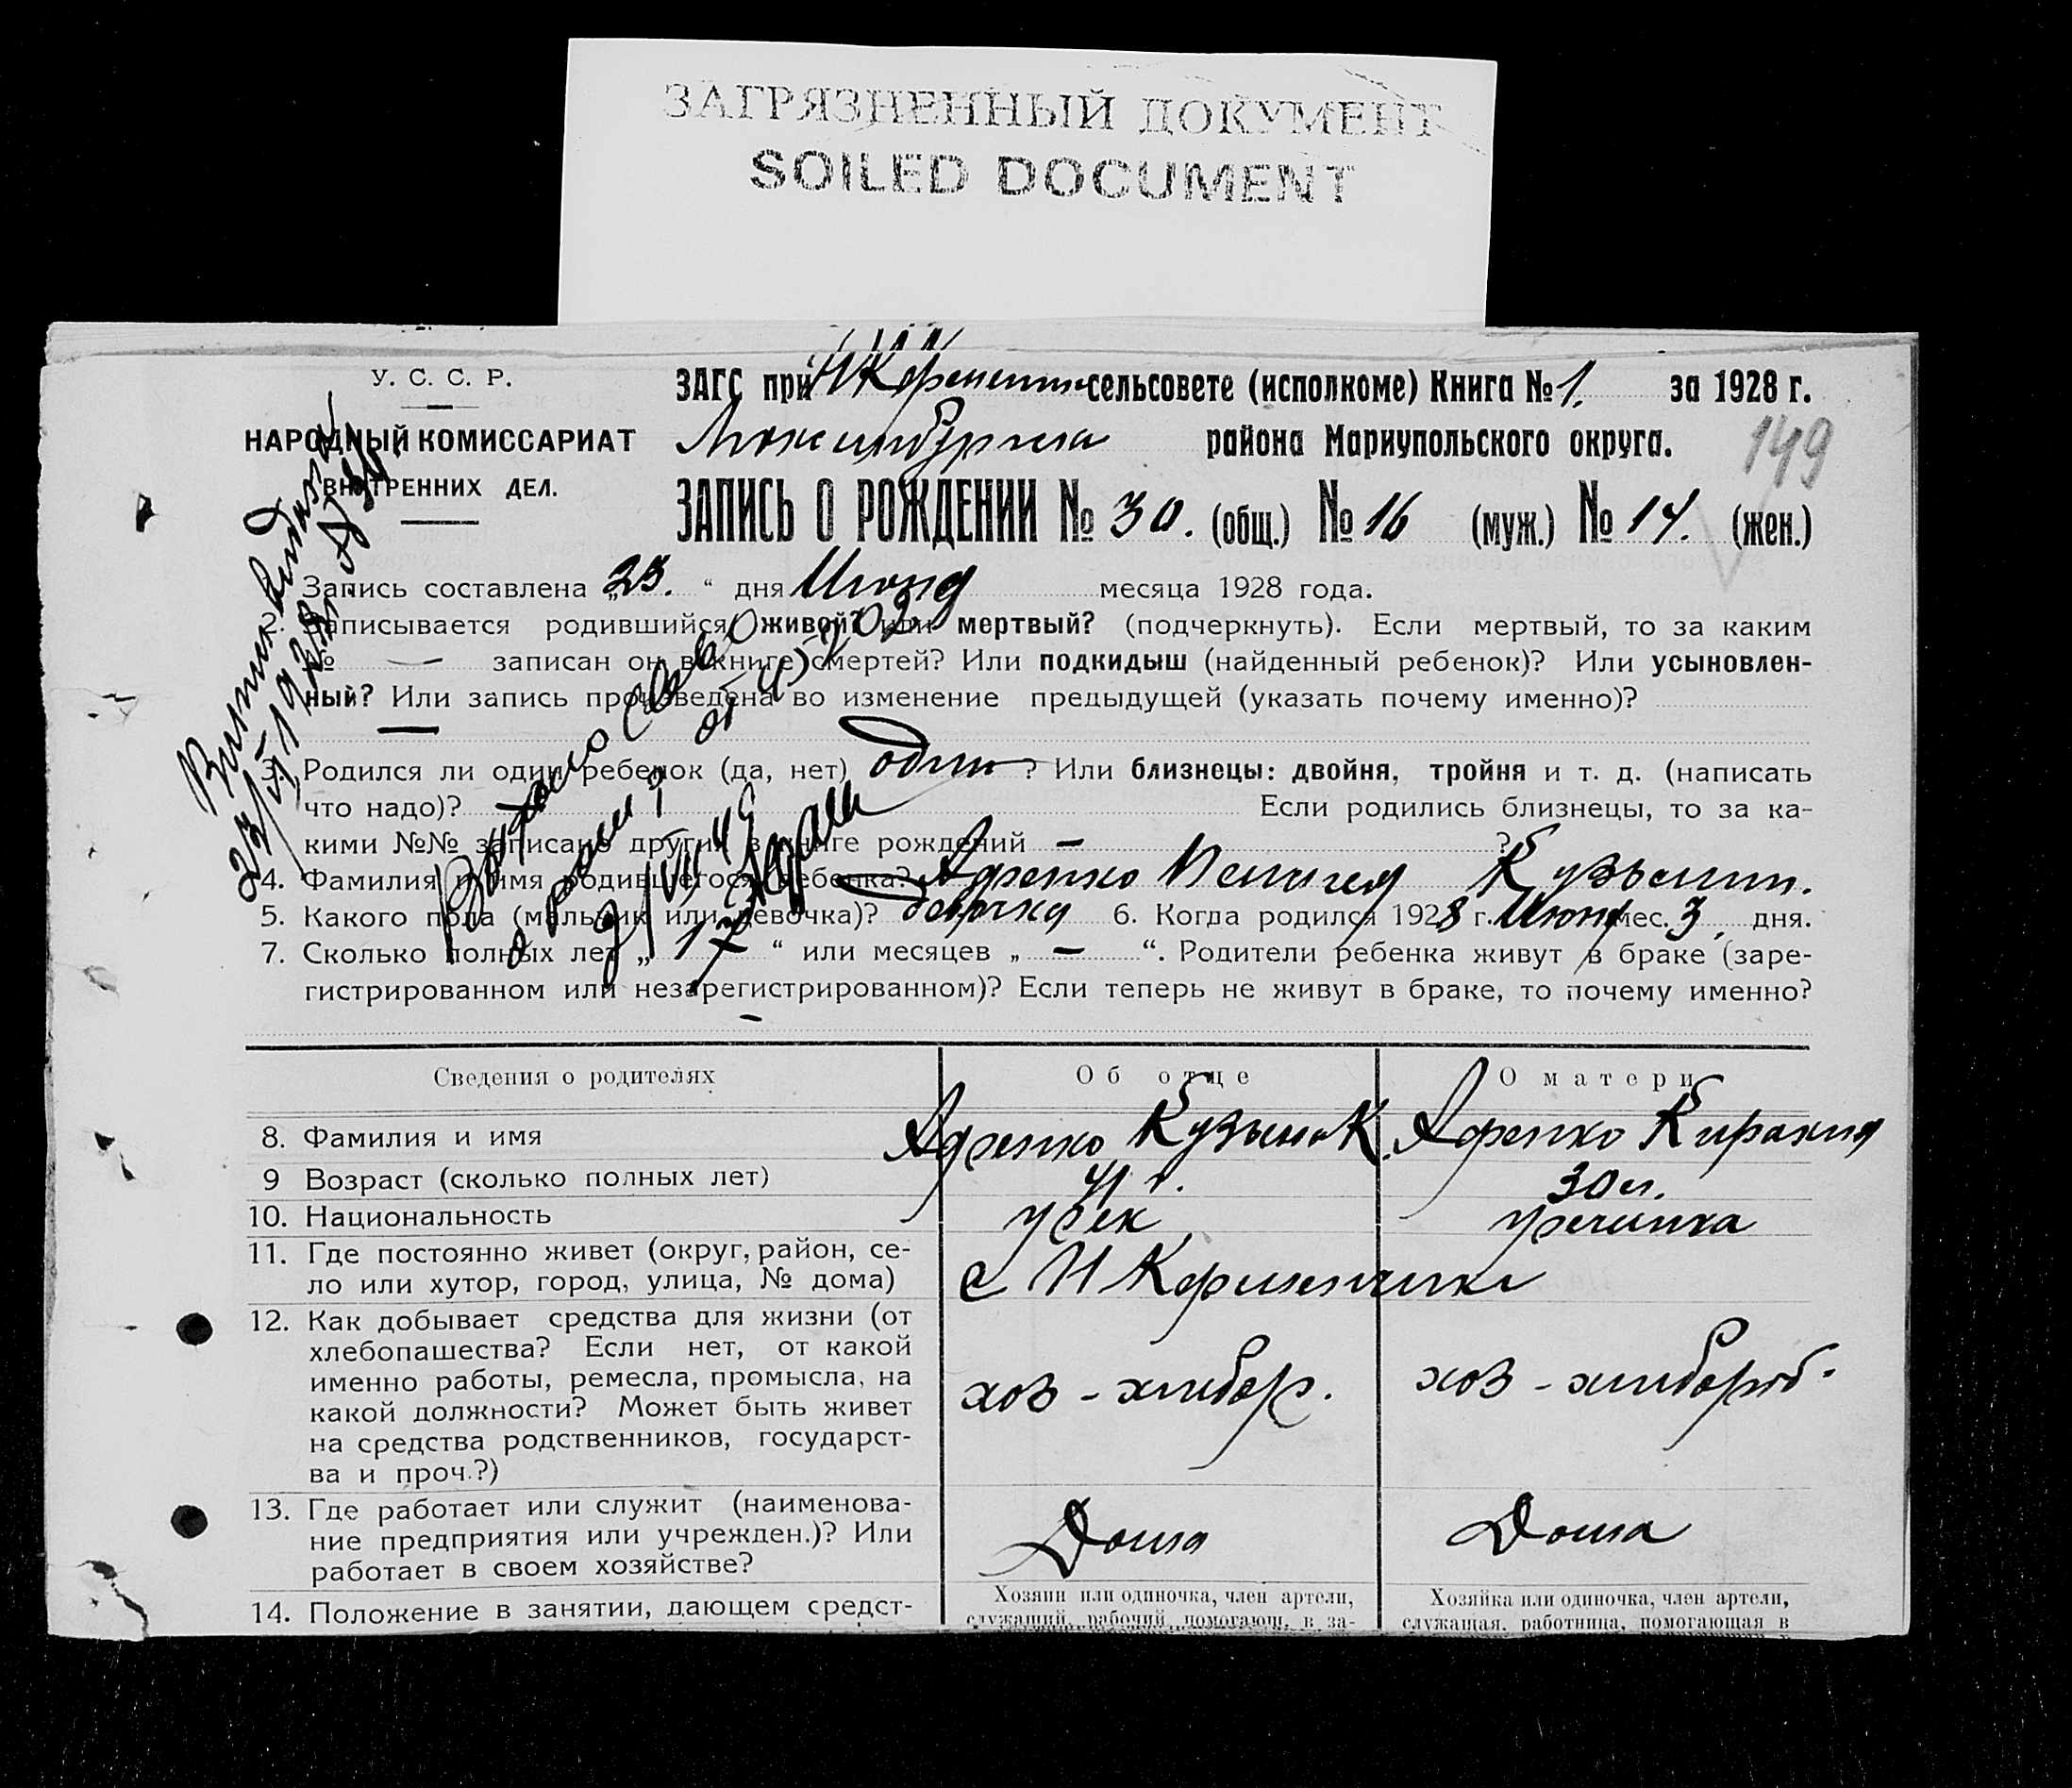 ЗАГРЯЗНЕННЫЙ ДОКУМЕНТ
SOILED DOCUMENT
У. С. С. Р.
НАРОДНЫЙ КОМИССАРИАТ
ВНУТРЕННИХ ДЕЛ.
ЗАГС при сельсовете (исполкоме) Книга № 1. за 1928 г.
района Мариупольского округа.
149
ЗАПИСЬ О РОЖДЕНИИ № 30. (общ.) № 16 (муж.) № 14. (жен.)
Запись составлена „23. “ дня Июня месяца 1928 года.
2. Записывается родившийся живой? или мертвый? (подчеркнуть). Если мертвый, то за каким
№ — записан он в книге смертей? Или подкидыш (найденный ребенок)? Или усыновлен-
ный? Или запись произведена во изменение предыдущей (указать почему именно)?
—
3. Родился ли один ребенок (да, нет) один ? Или близнецы: двойня, тройня и т. д. (написать
что надо)? Если родились близнецы, то за ка-
кими №№ записано других в книге рождений — ?
4. Фамилия и имя родившегося ребенка? Кузьмин.
5. Какого пола (мальчик или девочка)? девочка 6. Когда родился 1928 г. Июня мес. 3 дня.
7. Сколько полных лет „ “ или месяцев „ — “. Родители ребенка живут в браке (заре-
гистрированном или незарегистрированном)? Если теперь не живут в браке, то почему именно?
—
Сведения о родителях Об отце О матери
8. Фамилия и имя
9 Возраст (сколько полных лет) 41 г. 30 л.
10. Национальность грек гречанка
11. Где постоянно живет (округ, район, се-
ло или хутор, город, улица, № дома)
12. Как добывает средства для жизни (от
хлебопашества? Если нет, от какой
именно работы, ремесла, промысла, на
какой должности? Может быть живет
на средства родственников, государст-
ва и проч.?)
хоз - хлибор. хоз - хлибороб.
13. Где работает или служит (наименова-
ние предприятия или учрежден.)? Или
работает в своем хозяйстве?
Дома Дома
14. Положение в занятии, дающем средст-
Хозяин или одиночка, член артели,
служащий, рабочий, помогающ. в за-
Хозяйка или одиночка, член артели,
служащая, работница, помогающая в